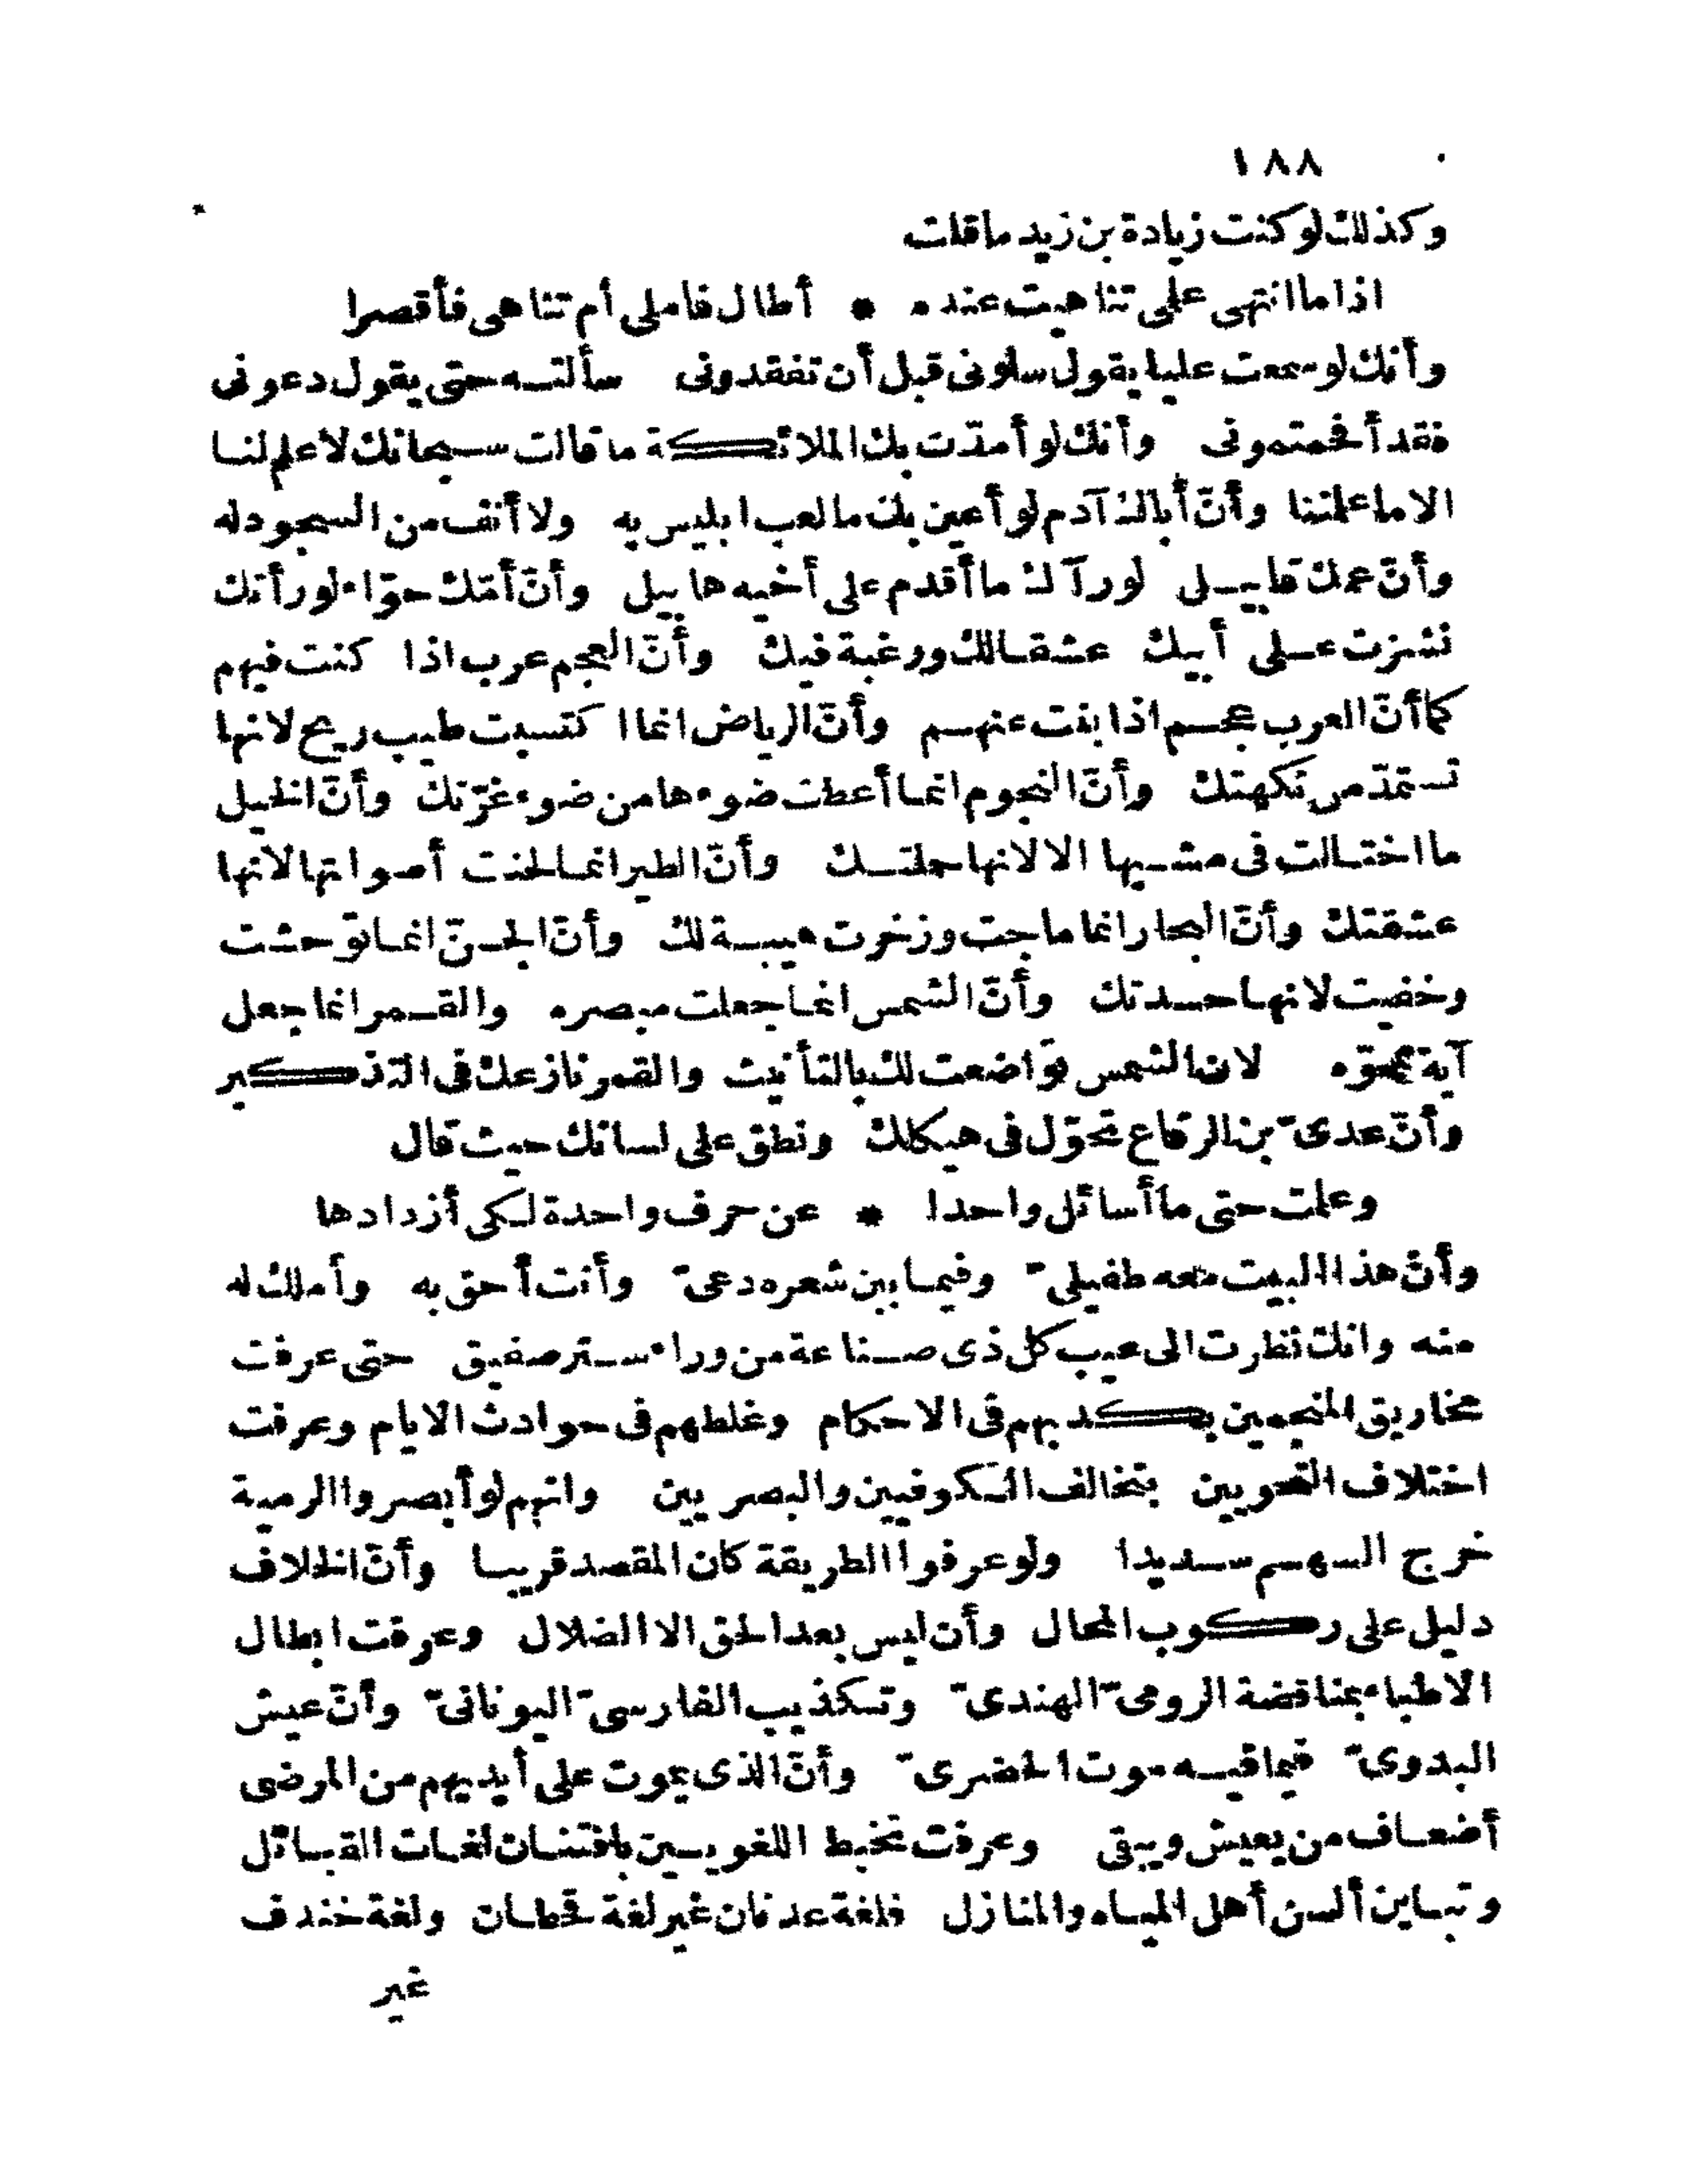 ١٨٨
وكذلك لو كنت زيادة بن زيد ما قلت
اذا ما انتهى على تناهيت عنده * أطال فاملى أم تناهى فأقصرا
وأنك لو سمعت عليا يقول سلونى قبل أن تفقدونى سألتــه حتى يقول دعونى
فقد أفحمتمونى وأنك لو أمدّت بك الملائكة ما قالت سبحانك لا علم لنا
الا ما علمتنا وأنّ أباك آدم لو أعين بك ما لعب ابليس به ولا أنف من السجود له
وأنّ عمك قابيــلى لو رآك ما أقدم على أخيه هابيل وأنّ أمّك حوّاء لو رأتك
نشزت عــلى أبيك عشقا لك ورغبة فيك وأنّ العجم عرب اذا كنت فيهم
كما أنّ العرب عجــم اذا بنت عنهــم وأنّ الرياض انما اكتسبت طيب ريح لانها
تستمدّ من نكهتك وأنّ النجوم انما أعطت ضوءها من ضوء غرّتك وأنّ الخيل
ما اختالت فى مشــيها الا لانها حملتــك وأنّ الطير انما لحنت أصواتها لانها
عشقتك وأنّ البحار انما ماجت وزخرت هيبــة لك وأنّ الجــنّ انما توحشت
وخفيت لانها حسدتك وأنّ الشمس انما جعلت مبصره والقــمر انما جعل
آية ممحوّه لان الشمس تواضعت لك بالتأنيث والقمر نازعك فى التذكير
وأنّ عدىّ بن الرقاع تحوّل فى هيكلك ونطق على لسانك حيث قال
وعلمت حتى ما أسائل واحدا * عن حرف واحدة لكى أزدادها
وأنّ هذا البيت معه طفيلىّ وفيما بين شعره دعىّ وأنت أحق به وأملك له
منه وانك نظرت الى عيب كل ذى صــناعة من وراء ســتر صفيق حتى عرفت
مخاريق المنجمين بكذبهم فى الاحكام وغلطهم فى حوادث الايام وعرفت
اختلاف النحويين بتخالف الكوفيين والبصريين وانهم لو أبصروا الرمية
خرج السهــم ســديدا ولو عرفوا الطريقة كان المقصد قريبا وأنّ الخلاف
دليل على ركوب المحال وأن ليس بعد الحق الا الضلال وعرفت ابطال
الاطباء بمناقضة الرومىّ الهندىّ وتكذيب الفارسىّ اليونانىّ وأنّ عيش
البدوىّ فيما فيــه موت الحضرىّ وأنّ الذى يموت على أيديهم من المرضى
أضعــاف من يعيش ويبقى وعرفت تخبط اللغويــين بافتنــان لغــات القبــائل
وتبــاين ألسن أهل الميــاه والمنازل فلغة عدنان غير لغة قحطــان ولغة خندف
غير